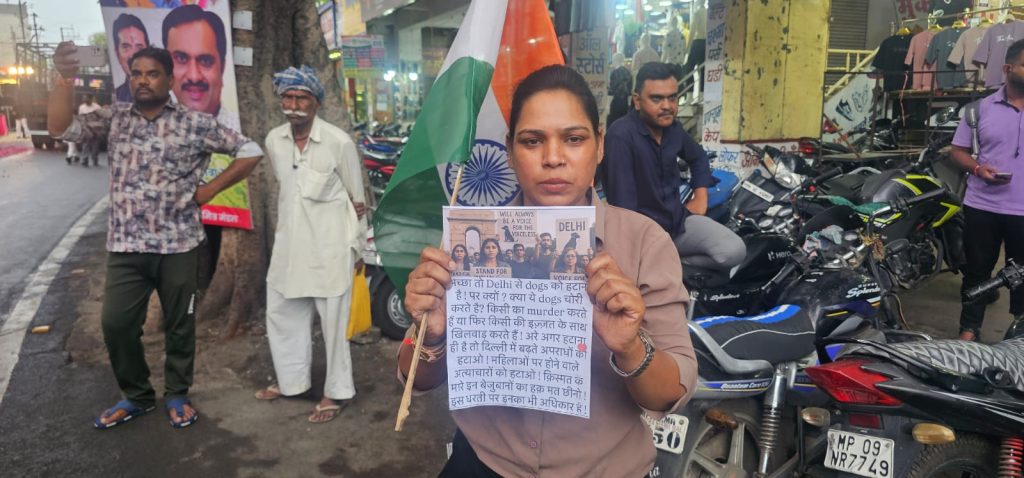 WILL ALWAYS
BE A VOICE
FOR THE
VOICELESS
DELHI
STAND FOR
VOICE FOR
अच्छा तो Delhi से dogs को हटाना
है! पर क्यों? क्या ये dogs चोरी
करते है? किसी का murder करते
हैं या फिर किसी की इज़्ज़त के साथ
खिलवाड़ करते हैं! अरे अगर हटाना
ही है तो दिल्ली में बढ़ते अपराधों को
हटाओ! महिलाओं पर होने वाले
अत्याचारों को हटाओ! क़िस्मत के
मारे इन बेज़ुबानों का हक़ मत छीनो!
इस धरती पर इनका भी अधिकार है!
मित्र मंडल
ऑल
स्टोर्स
HERO
Splendor
MP 09
NR7749
50